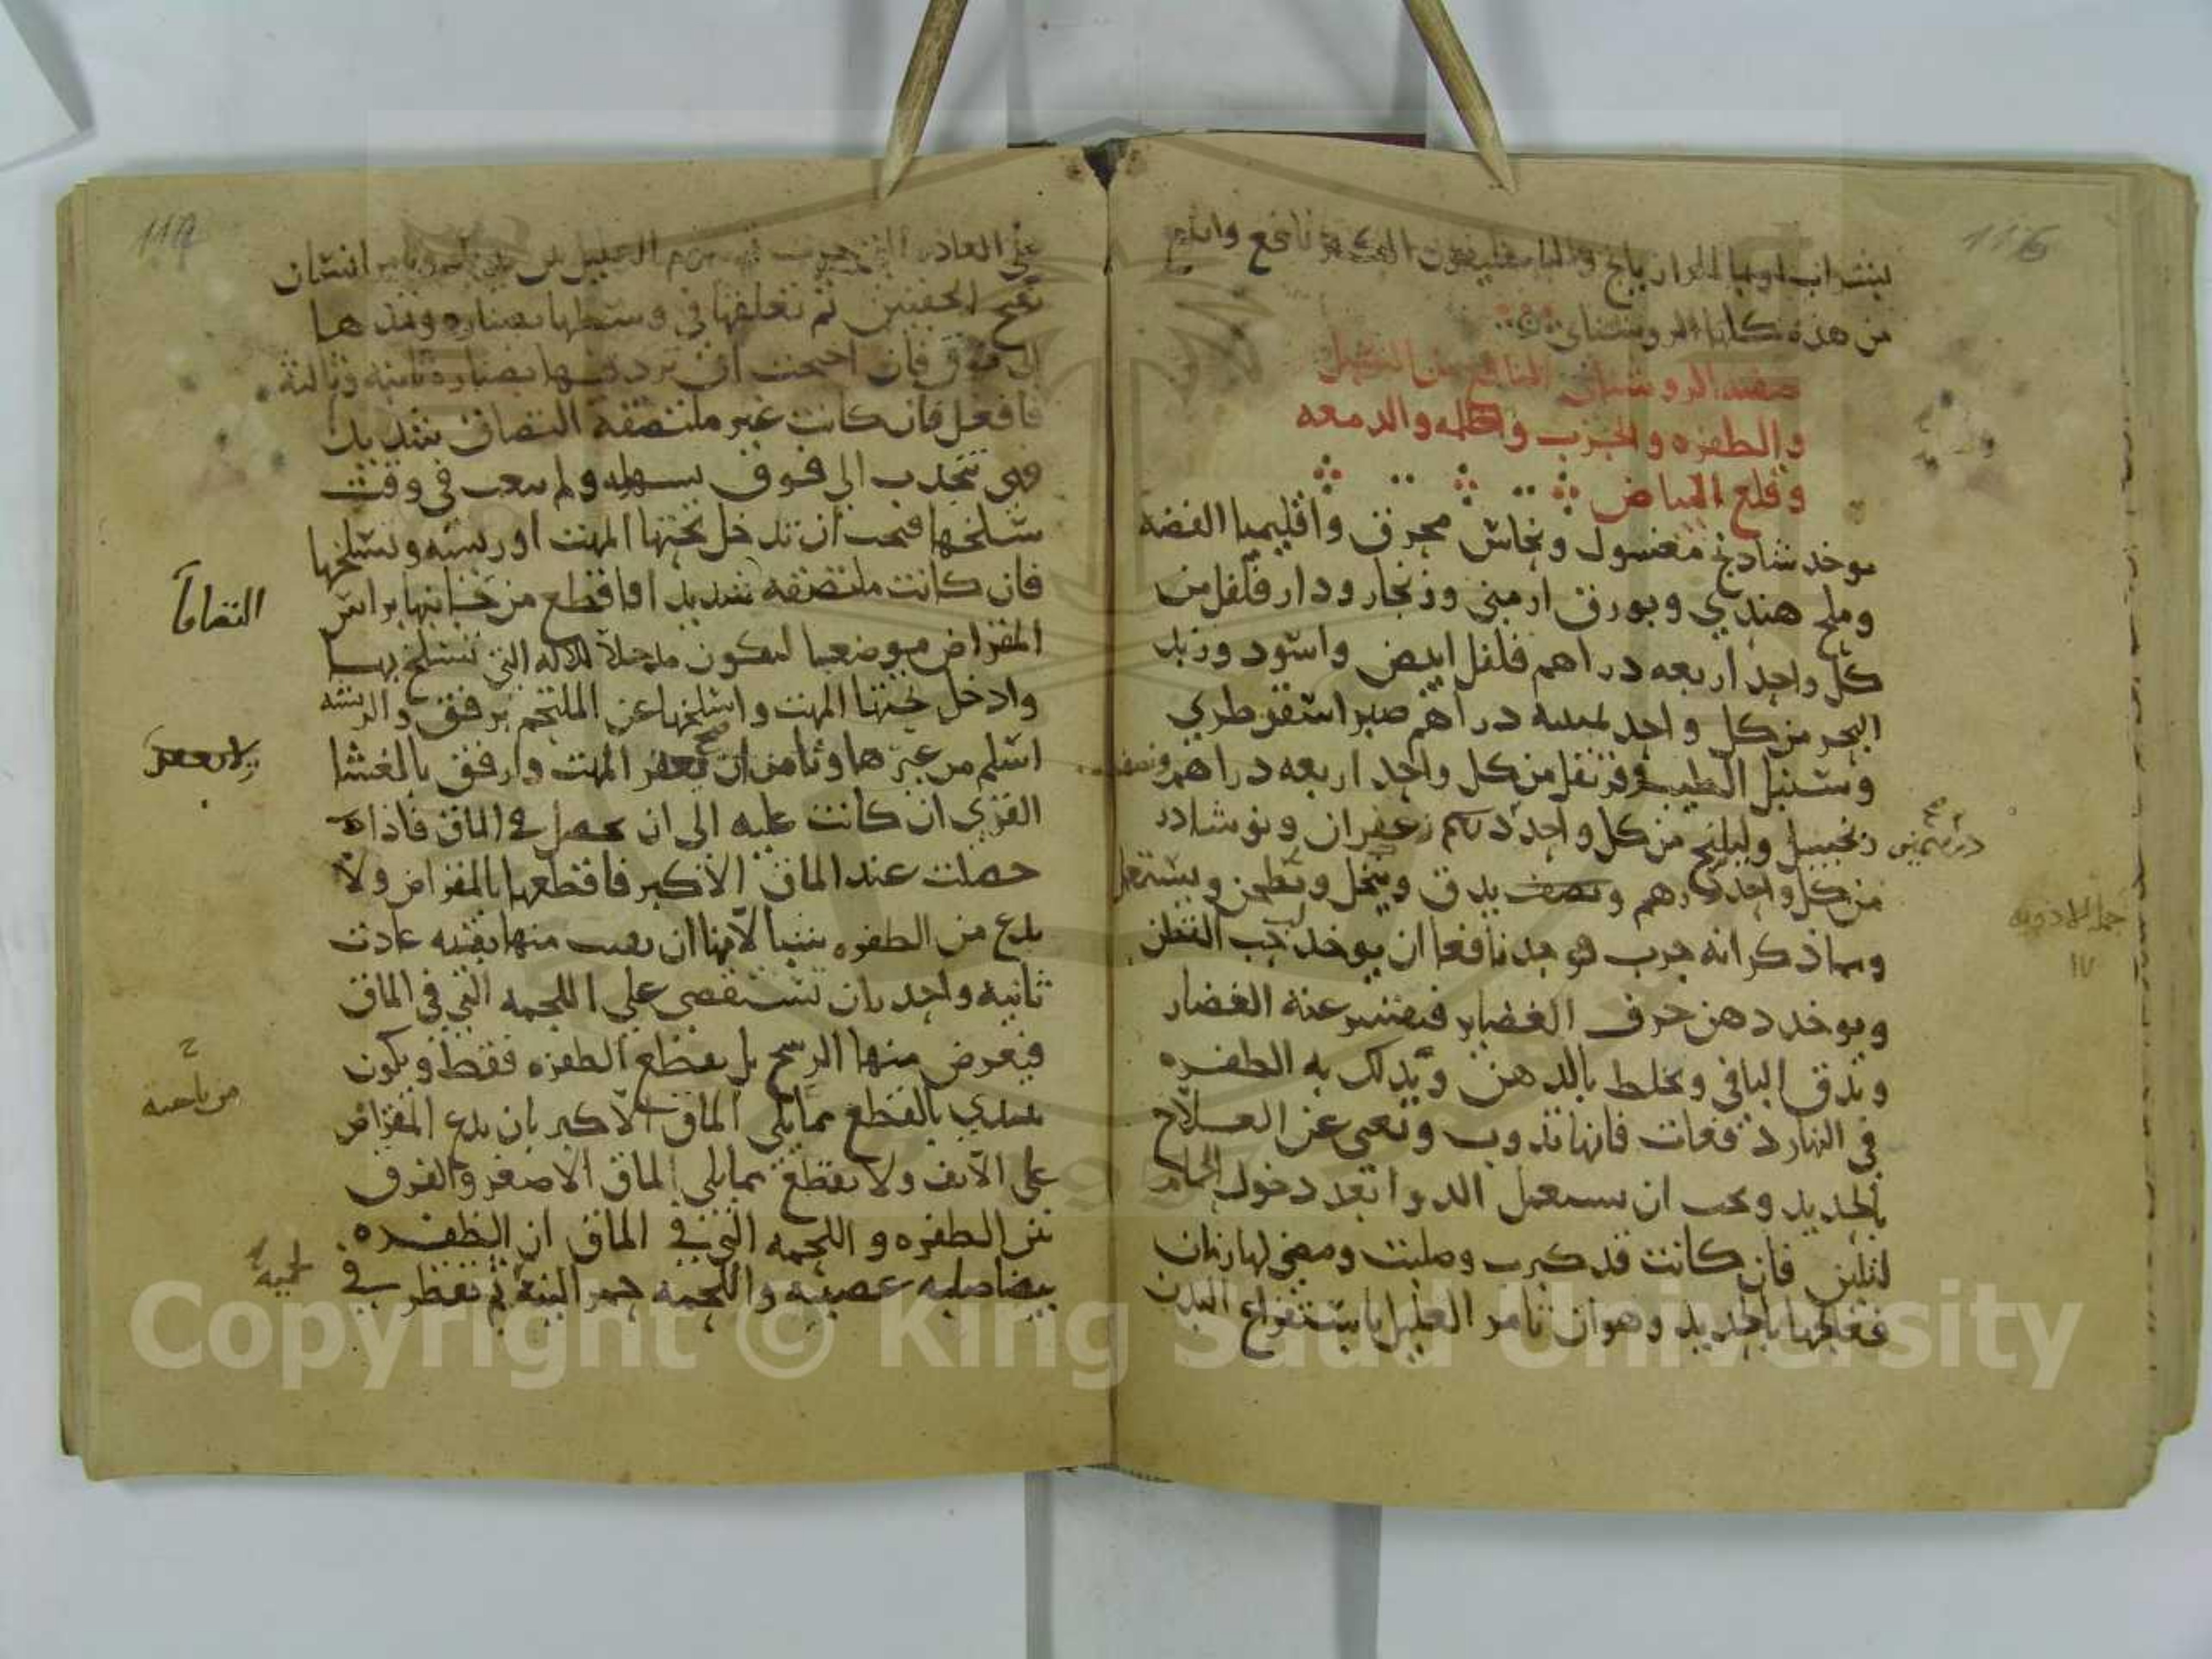 116
من هذه كلها الروشناي
صفة الروشناي النافع من السبل
والظفره والجرب والحكه والدمعه
وقلع البياض
يوخذ شادنج مغسول ونحاس محرق واقليميا الفضه
وملح هندي وبورق ارمني وزنجار ودار فلفل من
كل واحد اربعه دراهم فلفل ابيض واسود وزبد
البحر من كل واحد ثمنيه دراهم صبر اسقوطري
وسنبل الطيب وقرنفل من كل واحد اربعه دراهم ونصف
زنجبيل وليلنج من كل واحد درهم زعفران ونوشادر
درهمين
من كل واحد درهم ونصف يدق وينخل ويطحن ويستعمل
جمله الادويه
١٧
ومما ذكر انه جرب فوجد نافعا ان يوخذ حب القطن
ويوخذ دهن خزف الغضاير فيقشر عنه الغضار
ويدق الباقي ويخلط بالدهن ويدلك به الظفره
في النهار دفعات فانها تذوب وتغني عن العلاج
بالحديد ويجب ان يستعمل الدوا بعد دخول الحمام
لتلين فان كانت قد كبرت وصلبت ومضى لها زمان
فعالجها بالحديد وهو ان تامر العليل باستفراغ البدن
117
على العاده التي جرت
تفتح الجفنين ثم تعلقها في وسطها بصناره ومدها
الى فوق فان احتجت ان تزد فيها بصناره ثانيه وثالثه
فافعل فان كانت غير ملتصقه التصاق شديد
فهي تنجذب الى فوق بسهوله ولم يتعب في وقت
سلخها فيجب ان تدخل تحتها المهت او ريشه وتسلخها
فان كانت ملتصقه شديد افاقطع من جانبها براس
التصاقا
المقراض موضعا ليكون مدخلا للاله التي تسلخ بها
وادخل تحتها المهت واسلخها عن الملتحم برفق والريشه
اسلم من غيرها وتامن ان يعقر المهت وارفق بالغشا
ليلا يعقر
القرني ان كانت عليه الى ان تحصل في الماق فاذا
حصلت عند الماق الاكبر فاقطعها بالمقراض ولا
تدع من الظفره شيا لانها ان بقيت منها بقيه عادت
ثانيه واحذر ان تستقصي على اللحمه التي في الماق
فيعرض منها الرسح بل يقطع الظفره فقط ويكون
من ناحية
تبتدي بالقطع مما يلي الماق الاكبر بان يدع المقراض
على الانف ولا يقطع مما يلي الماق الاصغر والفرق
بين الظفره واللحمه التي في الماق ان الظفره
بيضا صلبه عصبيه واللحمه حمرا لينه ثم تقطر في
لحميه
Copyright © King Saud University